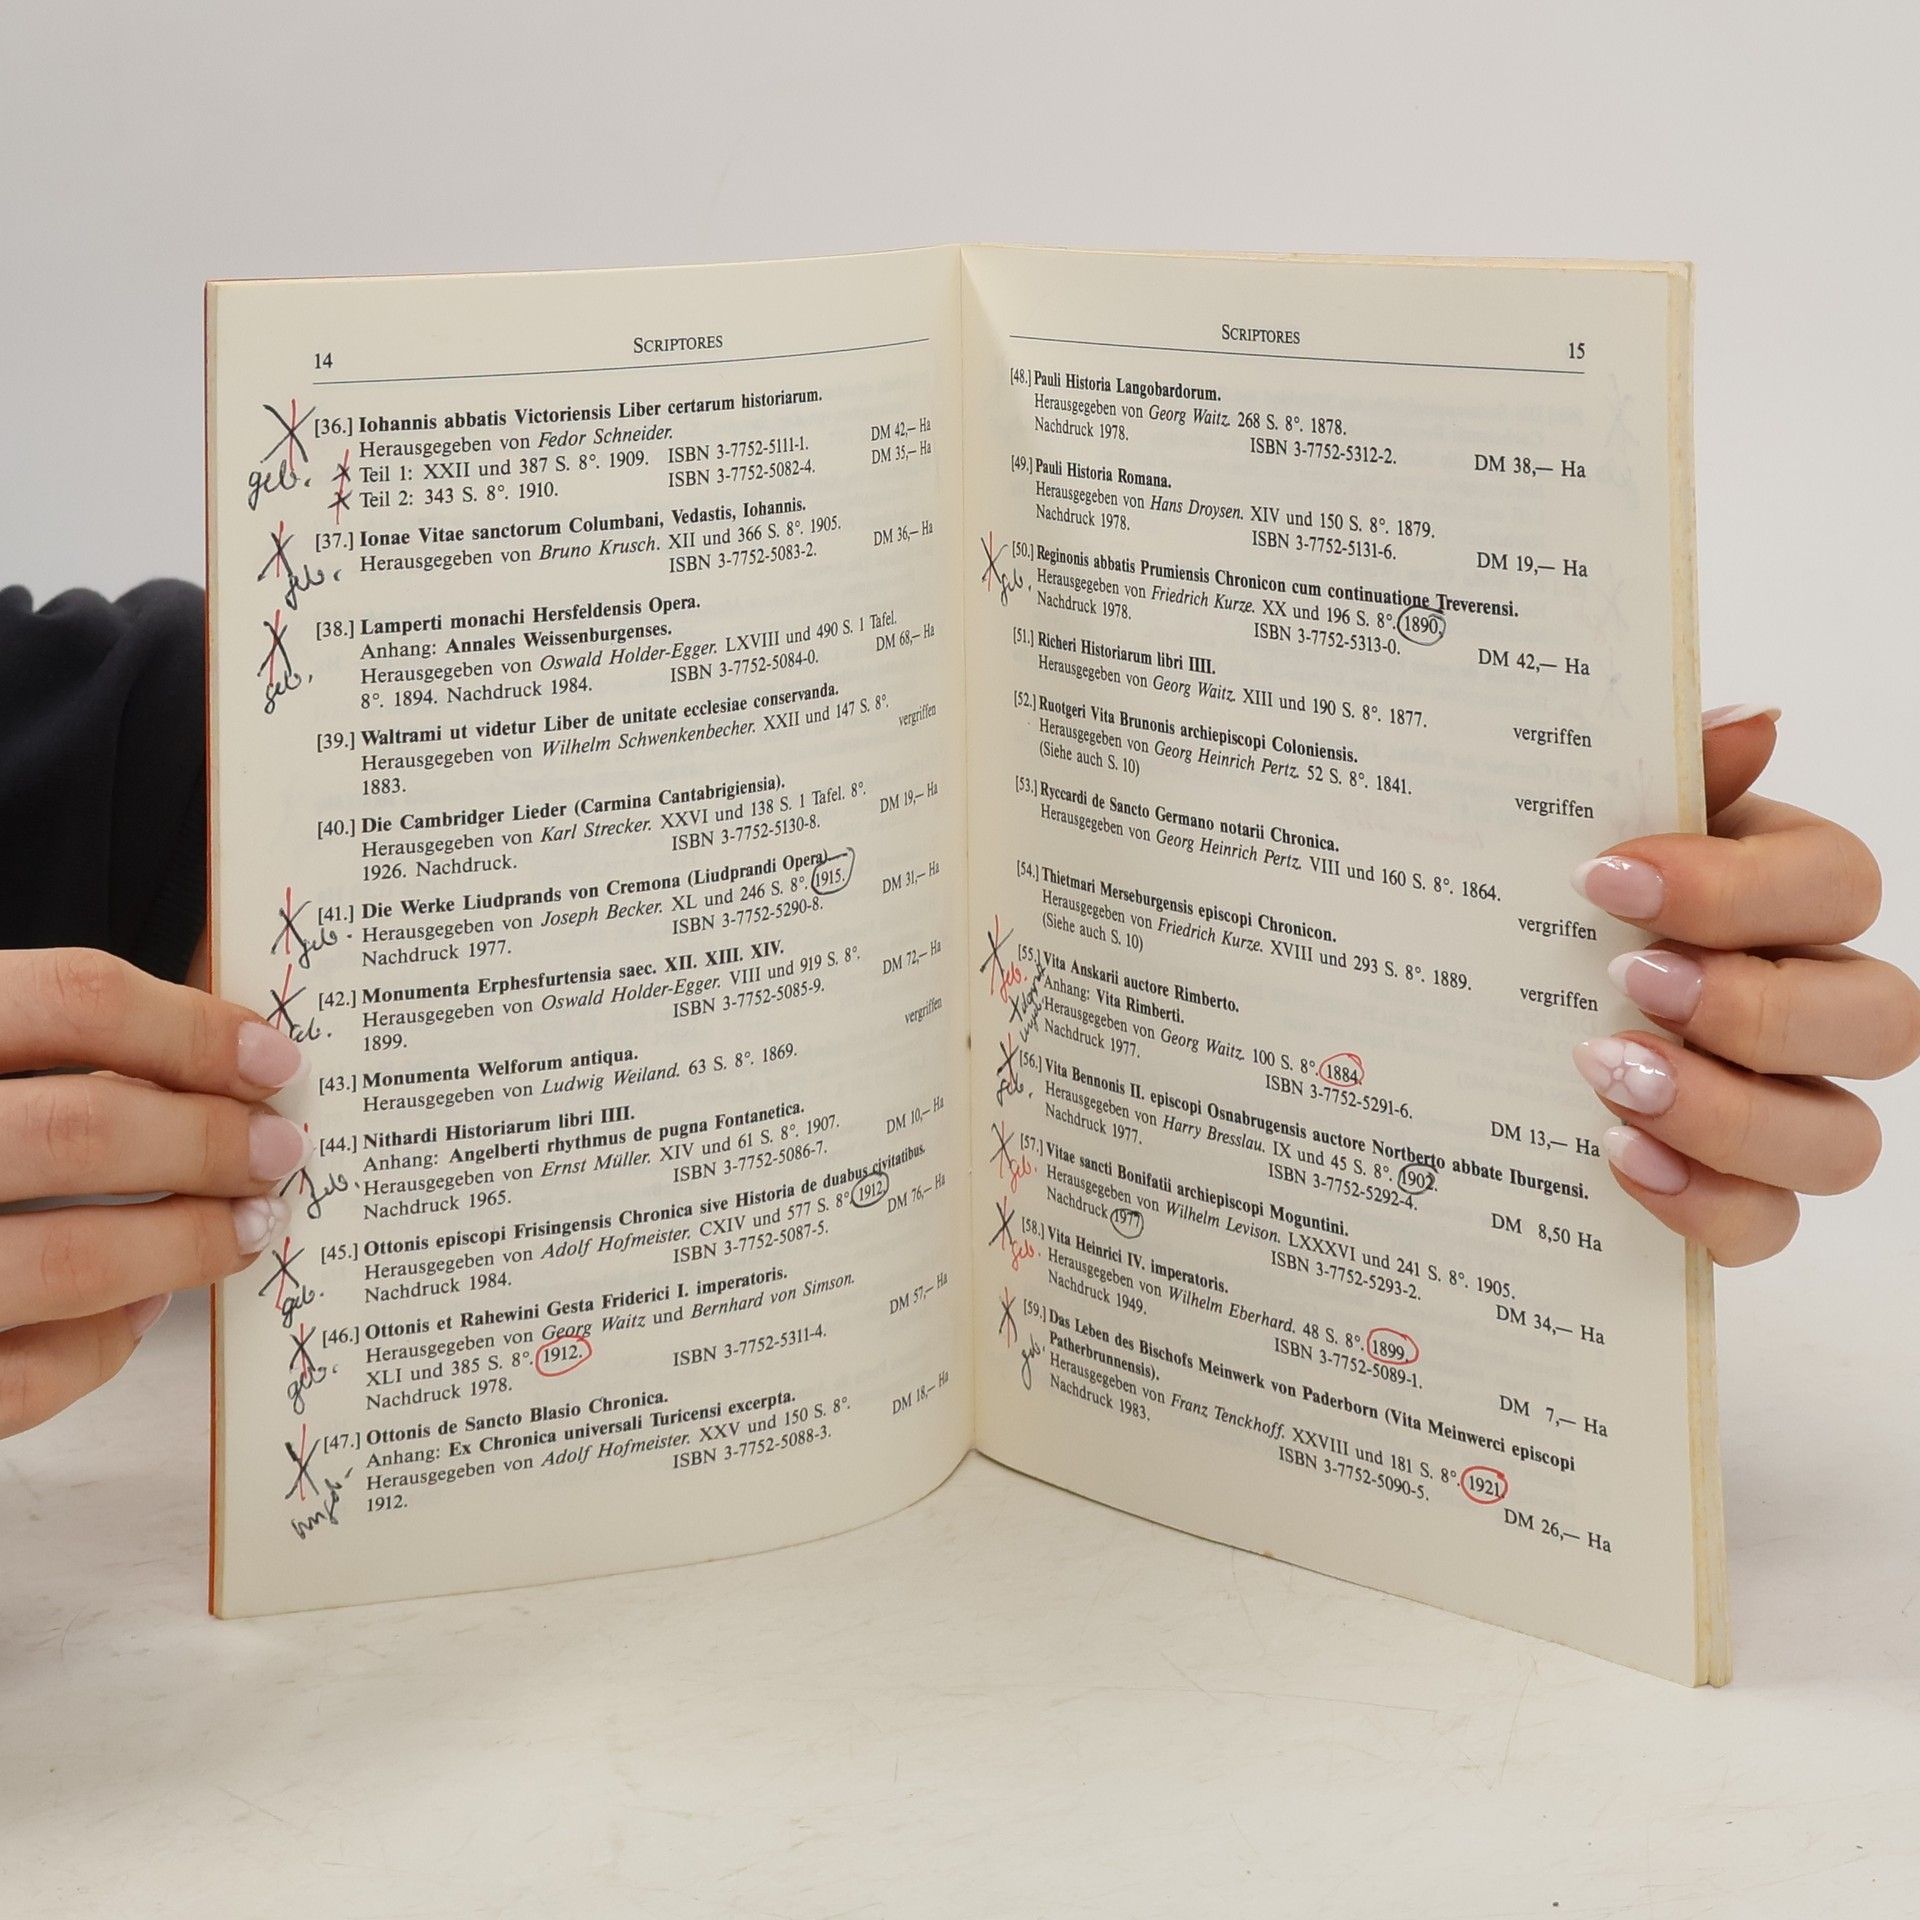 14
SCRIPTORES
[36.] Iohannis abbatis Victoriensis Liber certarum historiarum.
Herausgegeben von Fedor Schneider.
geb. Teil 1: XXII und 387 S. 8°. 1909. ISBN 3-7752-5111-1. DM 42,— Ha
Teil 2: 343 S. 8°. 1910. ISBN 3-7752-5082-4. DM 35,— Ha
[37.] Ionae Vitae sanctorum Columbani, Vedastis, Iohannis.
geb. Herausgegeben von Bruno Krusch. XII und 366 S. 8°. 1905.
ISBN 3-7752-5083-2. DM 36,— Ha
[38.] Lamperti monachi Hersfeldensis Opera.
Anhang: Annales Weissenburgenses.
geb. Herausgegeben von Oswald Holder-Egger. LXVIII und 490 S. 1 Tafel.
8°. 1894. Nachdruck 1984. ISBN 3-7752-5084-0. DM 68,— Ha
[39.] Waltrami ut videtur Liber de unitate ecclesiae conservanda.
Herausgegeben von Wilhelm Schwenkenbecher. XXII und 147 S. 8°.
1883. vergriffen
[40.] Die Cambridger Lieder (Carmina Cantabrigiensia).
Herausgegeben von Karl Strecker. XXVI und 138 S. 1 Tafel. 8°.
1926. Nachdruck. ISBN 3-7752-5130-8. DM 19,— Ha
[41.] Die Werke Liudprands von Cremona (Liudprandi Opera).
geb. Herausgegeben von Joseph Becker. XL und 246 S. 8°. 1915.
Nachdruck 1977. ISBN 3-7752-5290-8. DM 31,— Ha
[42.] Monumenta Erphesfurtensia saec. XII. XIII. XIV.
Herausgegeben von Oswald Holder-Egger. VIII und 919 S. 8°.
1899. ISBN 3-7752-5085-9. DM 72,— Ha
[43.] Monumenta Welforum antiqua.
Herausgegeben von Ludwig Weiland. 63 S. 8°. 1869. vergriffen
[44.] Nithardi Historiarum libri IIII.
Anhang: Angelberti rhythmus de pugna Fontanetica.
geb. Herausgegeben von Ernst Müller. XIV und 61 S. 8°. 1907.
Nachdruck 1965. ISBN 3-7752-5086-7. DM 10,— Ha
[45.] Ottonis episcopi Frisingensis Chronica sive Historia de duabus civitatibus.
geb. Herausgegeben von Adolf Hofmeister. CXIV und 577 S. 8°. 1912.
Nachdruck 1984. ISBN 3-7752-5087-5. DM 76,— Ha
[46.] Ottonis et Rahewini Gesta Friderici I. imperatoris.
Herausgegeben von Georg Waitz und Bernhard von Simson.
geb. XLI und 385 S. 8°. 1912.
Nachdruck 1978. ISBN 3-7752-5311-4. DM 57,— Ha
[47.] Ottonis de Sancto Blasio Chronica.
Anhang: Ex Chronica universali Turicensi excerpta.
Herausgegeben von Adolf Hofmeister. XXV und 150 S. 8°.
1912. ISBN 3-7752-5088-3. DM 18,— Ha
SCRIPTORES
15
[48.] Pauli Historia Langobardorum.
Herausgegeben von Georg Waitz. 268 S. 8°. 1878.
Nachdruck 1978. ISBN 3-7752-5312-2. DM 38,— Ha
[49.] Pauli Historia Romana.
Herausgegeben von Hans Droysen. XIV und 150 S. 8°. 1879.
Nachdruck 1978. ISBN 3-7752-5131-6. DM 19,— Ha
[50.] Reginonis abbatis Prumiensis Chronicon cum continuatione Treverensi.
geb. Herausgegeben von Friedrich Kurze. XX und 196 S. 8°. 1890.
Nachdruck 1978. ISBN 3-7752-5313-0. DM 42,— Ha
[51.] Richeri Historiarum libri IIII.
Herausgegeben von Georg Waitz. XIII und 190 S. 8°. 1877. vergriffen
[52.] Ruotgeri Vita Brunonis archiepiscopi Coloniensis.
Herausgegeben von Georg Heinrich Pertz. 52 S. 8°. 1841.
(Siehe auch S. 10) vergriffen
[53.] Ryccardi de Sancto Germano notarii Chronica.
Herausgegeben von Georg Heinrich Pertz. VIII und 160 S. 8°. 1864.
vergriffen
[54.] Thietmari Merseburgensis episcopi Chronicon.
Herausgegeben von Friedrich Kurze. XVIII und 293 S. 8°. 1889.
(Siehe auch S. 10) vergriffen
[55.] Vita Anskarii auctore Rimberto.
geb. Anhang: Vita Rimberti.
Herausgegeben von Georg Waitz. 100 S. 8°. 1884.
Nachdruck 1977. ISBN 3-7752-5291-6. DM 13,— Ha
[56.] Vita Bennonis II. episcopi Osnabrugensis auctore Nortberto abbate Iburgensi.
geb. Herausgegeben von Harry Bresslau. IX und 45 S. 8°. 1902.
Nachdruck 1977. ISBN 3-7752-5292-4. DM 8,50 Ha
[57.] Vitae sancti Bonifatii archiepiscopi Moguntini.
geb. Herausgegeben von Wilhelm Levison. LXXXVI und 241 S. 8°. 1905.
Nachdruck 1977 ISBN 3-7752-5293-2. DM 34,— Ha
[58.] Vita Heinrici IV. imperatoris.
geb. Herausgegeben von Wilhelm Eberhard. 48 S. 8°. 1899.
Nachdruck 1949. ISBN 3-7752-5089-1. DM 7,— Ha
[59.] Das Leben des Bischofs Meinwerk von Paderborn (Vita Meinwerci episcopi
geb. Patherbrunnensis).
Herausgegeben von Franz Tenckhoff. XXVIII und 181 S. 8°. 1921.
Nachdruck 1983. ISBN 3-7752-5090-5. DM 26,— Ha